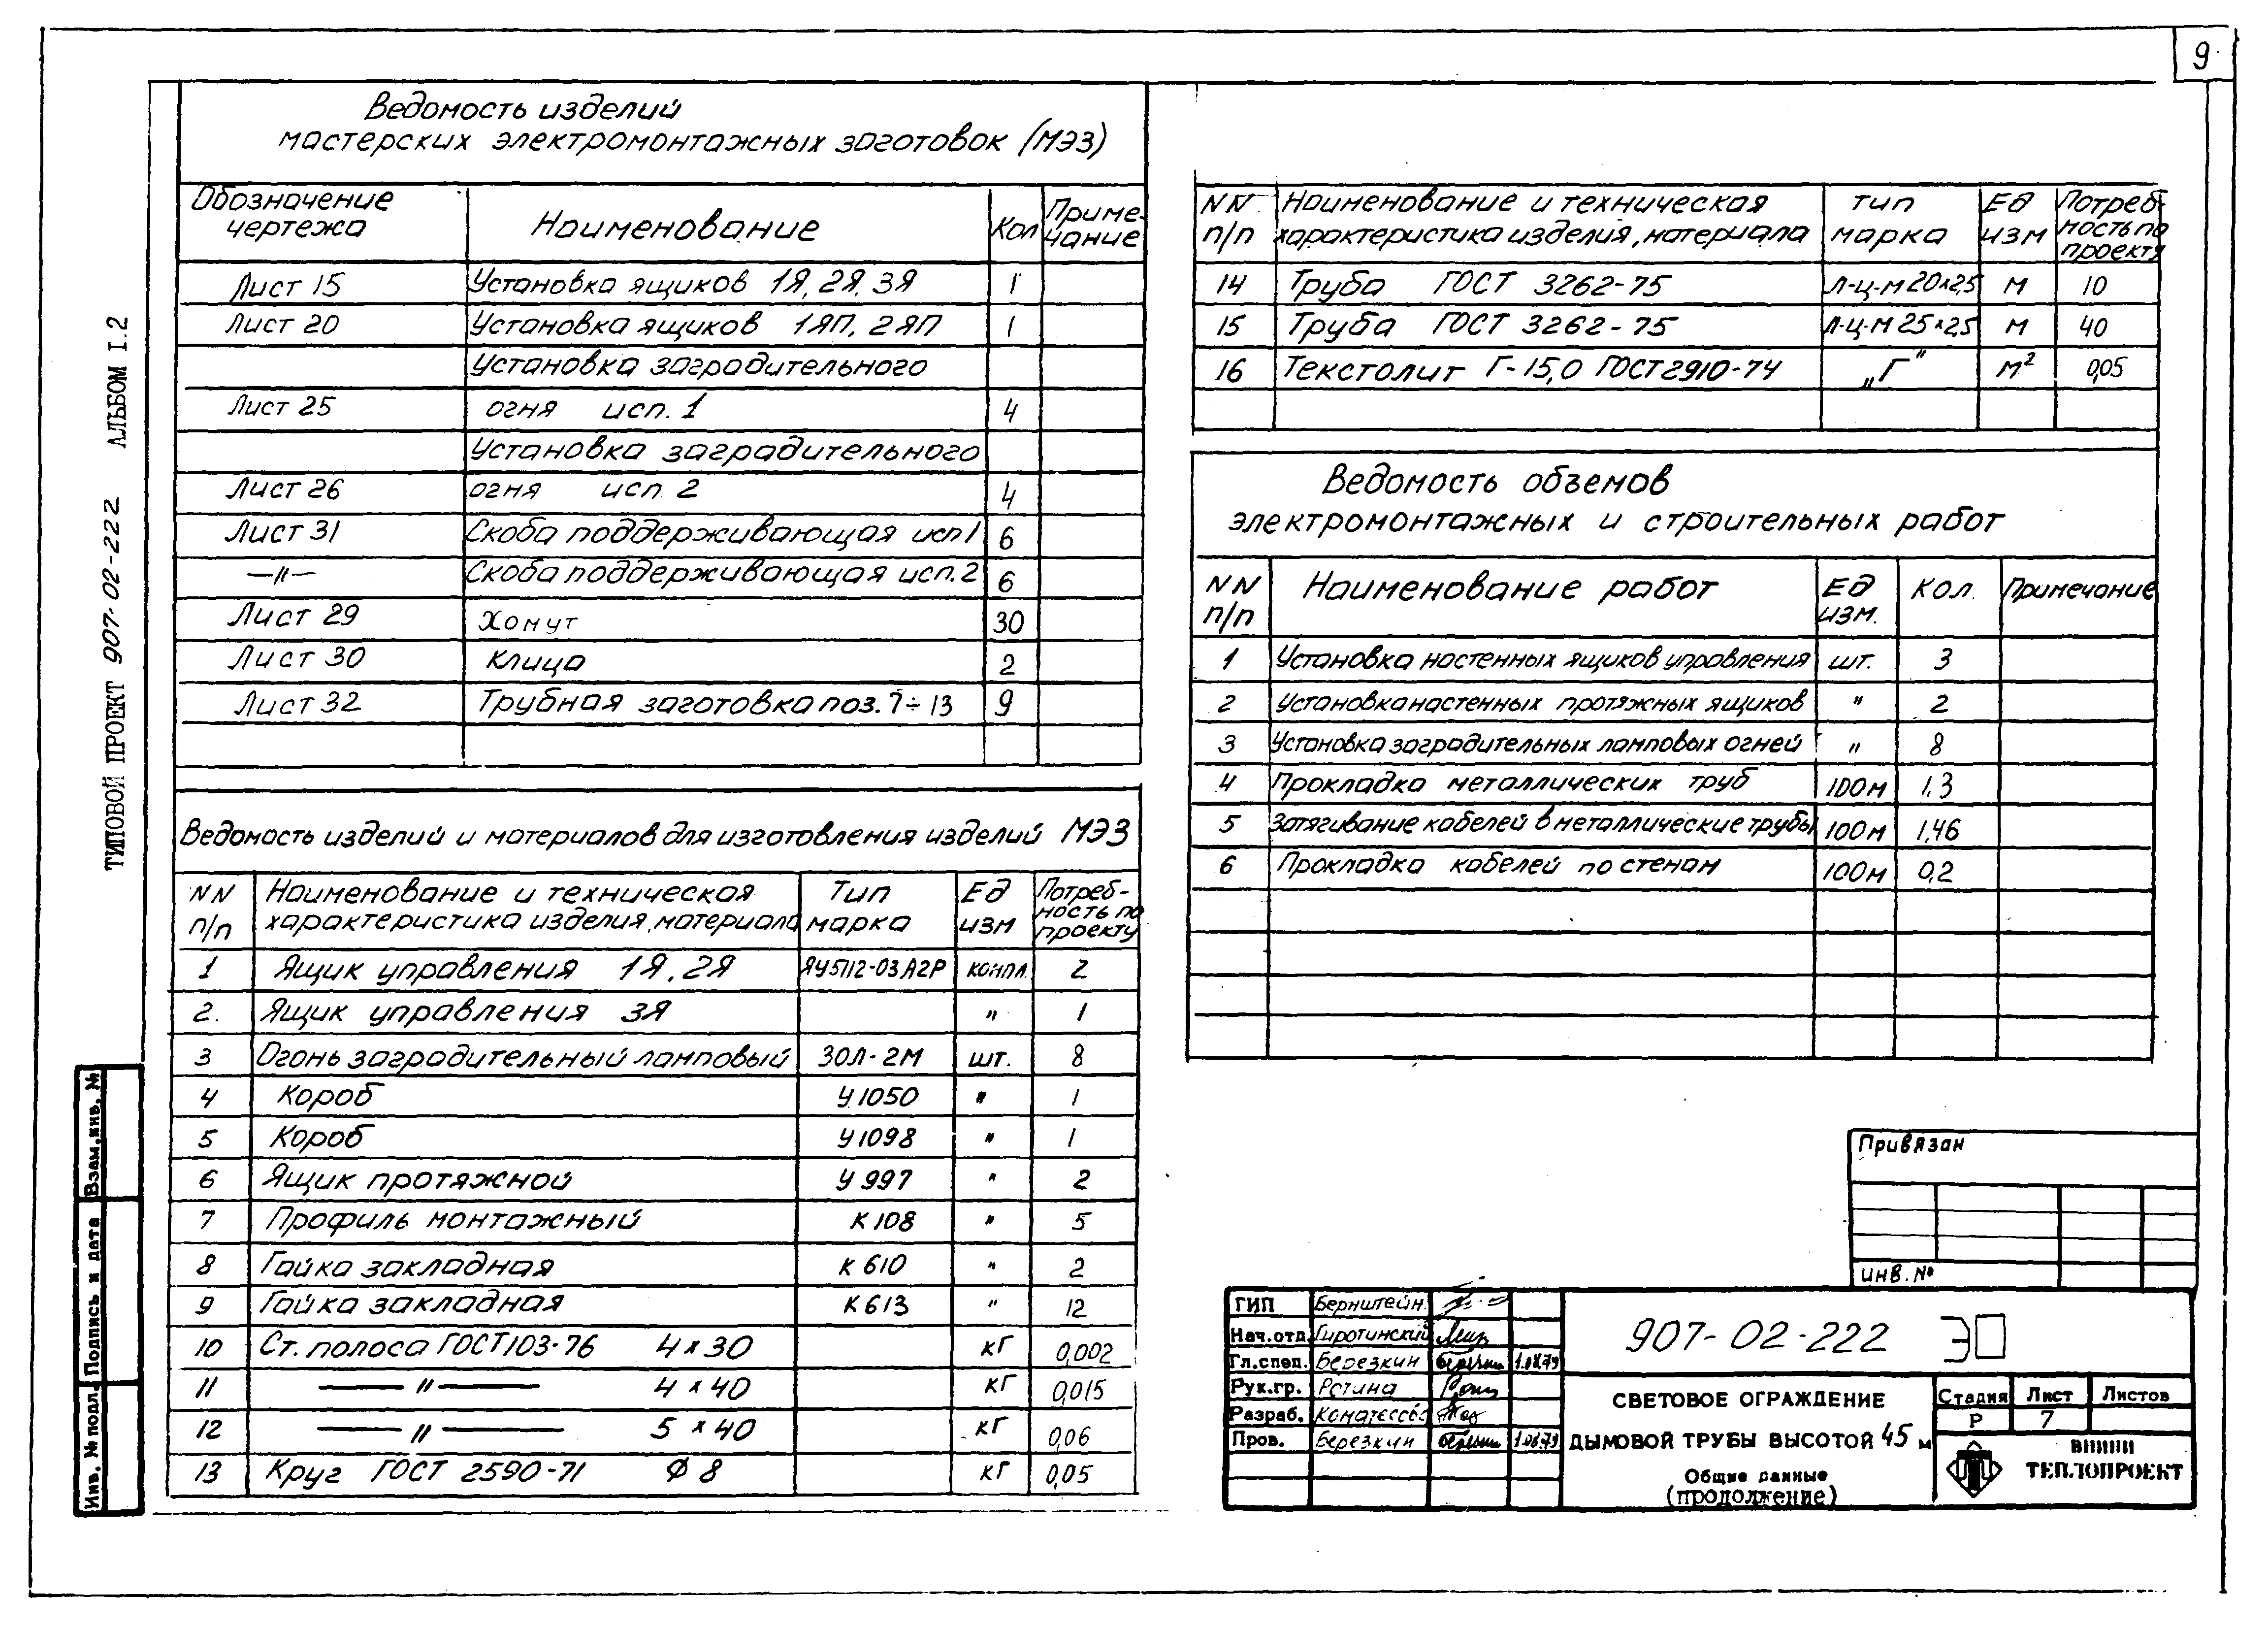 9
ТИПОВОЙ ПРОЕКТ 907-02-222 АЛЬБОМ I.2
Ведомость изделий
мастерских электромонтажных заготовок (МЭЗ)
Обозначение чертежа Наименование Кол Приме-чание
Лист 15 Установка ящиков 1Я, 2Я, 3Я 1
Лист 20 Установка ящиков 1ЯП, 2ЯП 1
Установка заградительного
Лист 25 огня исп. 1 4
Установка заградительного
Лист 26 огня исп. 2 4
Лист 31 Скоба поддерживающая исп 1 6
—"— Скоба поддерживающая исп. 2 6
Лист 29 Хомут 30
Лист 30 Клица 2
Лист 32 Трубная заготовка поз. 7÷13 9
Ведомость изделий и материалов для изготовления изделий МЭЗ
NN п/п Наименование и техническая характеристика изделия, материала Тип марка Ед изм Потреб-ность по проекту
1 Ящик управления 1Я, 2Я ЯУ5112-03А2Р компл. 2
2. Ящик управления 3Я " 1
3 Огонь заградительный ламповый ЗОЛ-2М шт. 8
4 Короб У1050 " 1
5 Короб У1098 " 1
6 Ящик протяжной У 997 " 2
7 Профиль монтажный К 108 " 5
8 Гайка закладная К 610 " 2
9 Гайка закладная К 613 " 12
10 Ст. полоса ГОСТ 103-76 4×30 кг 0,002
11 —"— 4×40 кг 0,015
12 —"— 5×40 кг 0,06
13 Круг ГОСТ 2590-71 Ф 8 кг 0,05
NN п/п Наименование и техническая характеристика изделия, материала тип марка Ед изм Потреб-ность по проекту
14 Труба ГОСТ 3262-75 Л-Ц-М 20×2,5 м 10
15 Труба ГОСТ 3262-75 Л-Ц-М 25×2,5 м 40
16 Текстолит Г-15,0 ГОСТ 2910-74 „Г" м² 0,05
Ведомость объемов
электромонтажных и строительных работ
NN п/п Наименование работ Ед изм. Кол. Примечание
1 Установка настенных ящиков управления шт. 3
2 Установка настенных протяжных ящиков " 2
3 Установка заградительных ламповых огней " 8
4 Прокладка металлических труб 100м 1,3
5 Затягивание кабелей в металлические трубы 100м 1,46
6 Прокладка кабелей по стенам 100м 0,2
Привязан
инв. №
ГИП Бернштейн
Нач.отд. Гиротинский
Гл.спец. Березкин 1.08.79
Рук.гр. Ротина
Разраб.
Пров. Березкин 1.08.79
907-02-222 Э
СВЕТОВОЕ ОГРАЖДЕНИЕ
ДЫМОВОЙ ТРУБЫ ВЫСОТОЙ 45 м
Общие данные
(продолжение)
Стадия Лист Листов
Р 7
ВНИПИ
ТЕПЛОПРОЕКТ
Инв. № подл. Подпись и дата Взам.инв. №